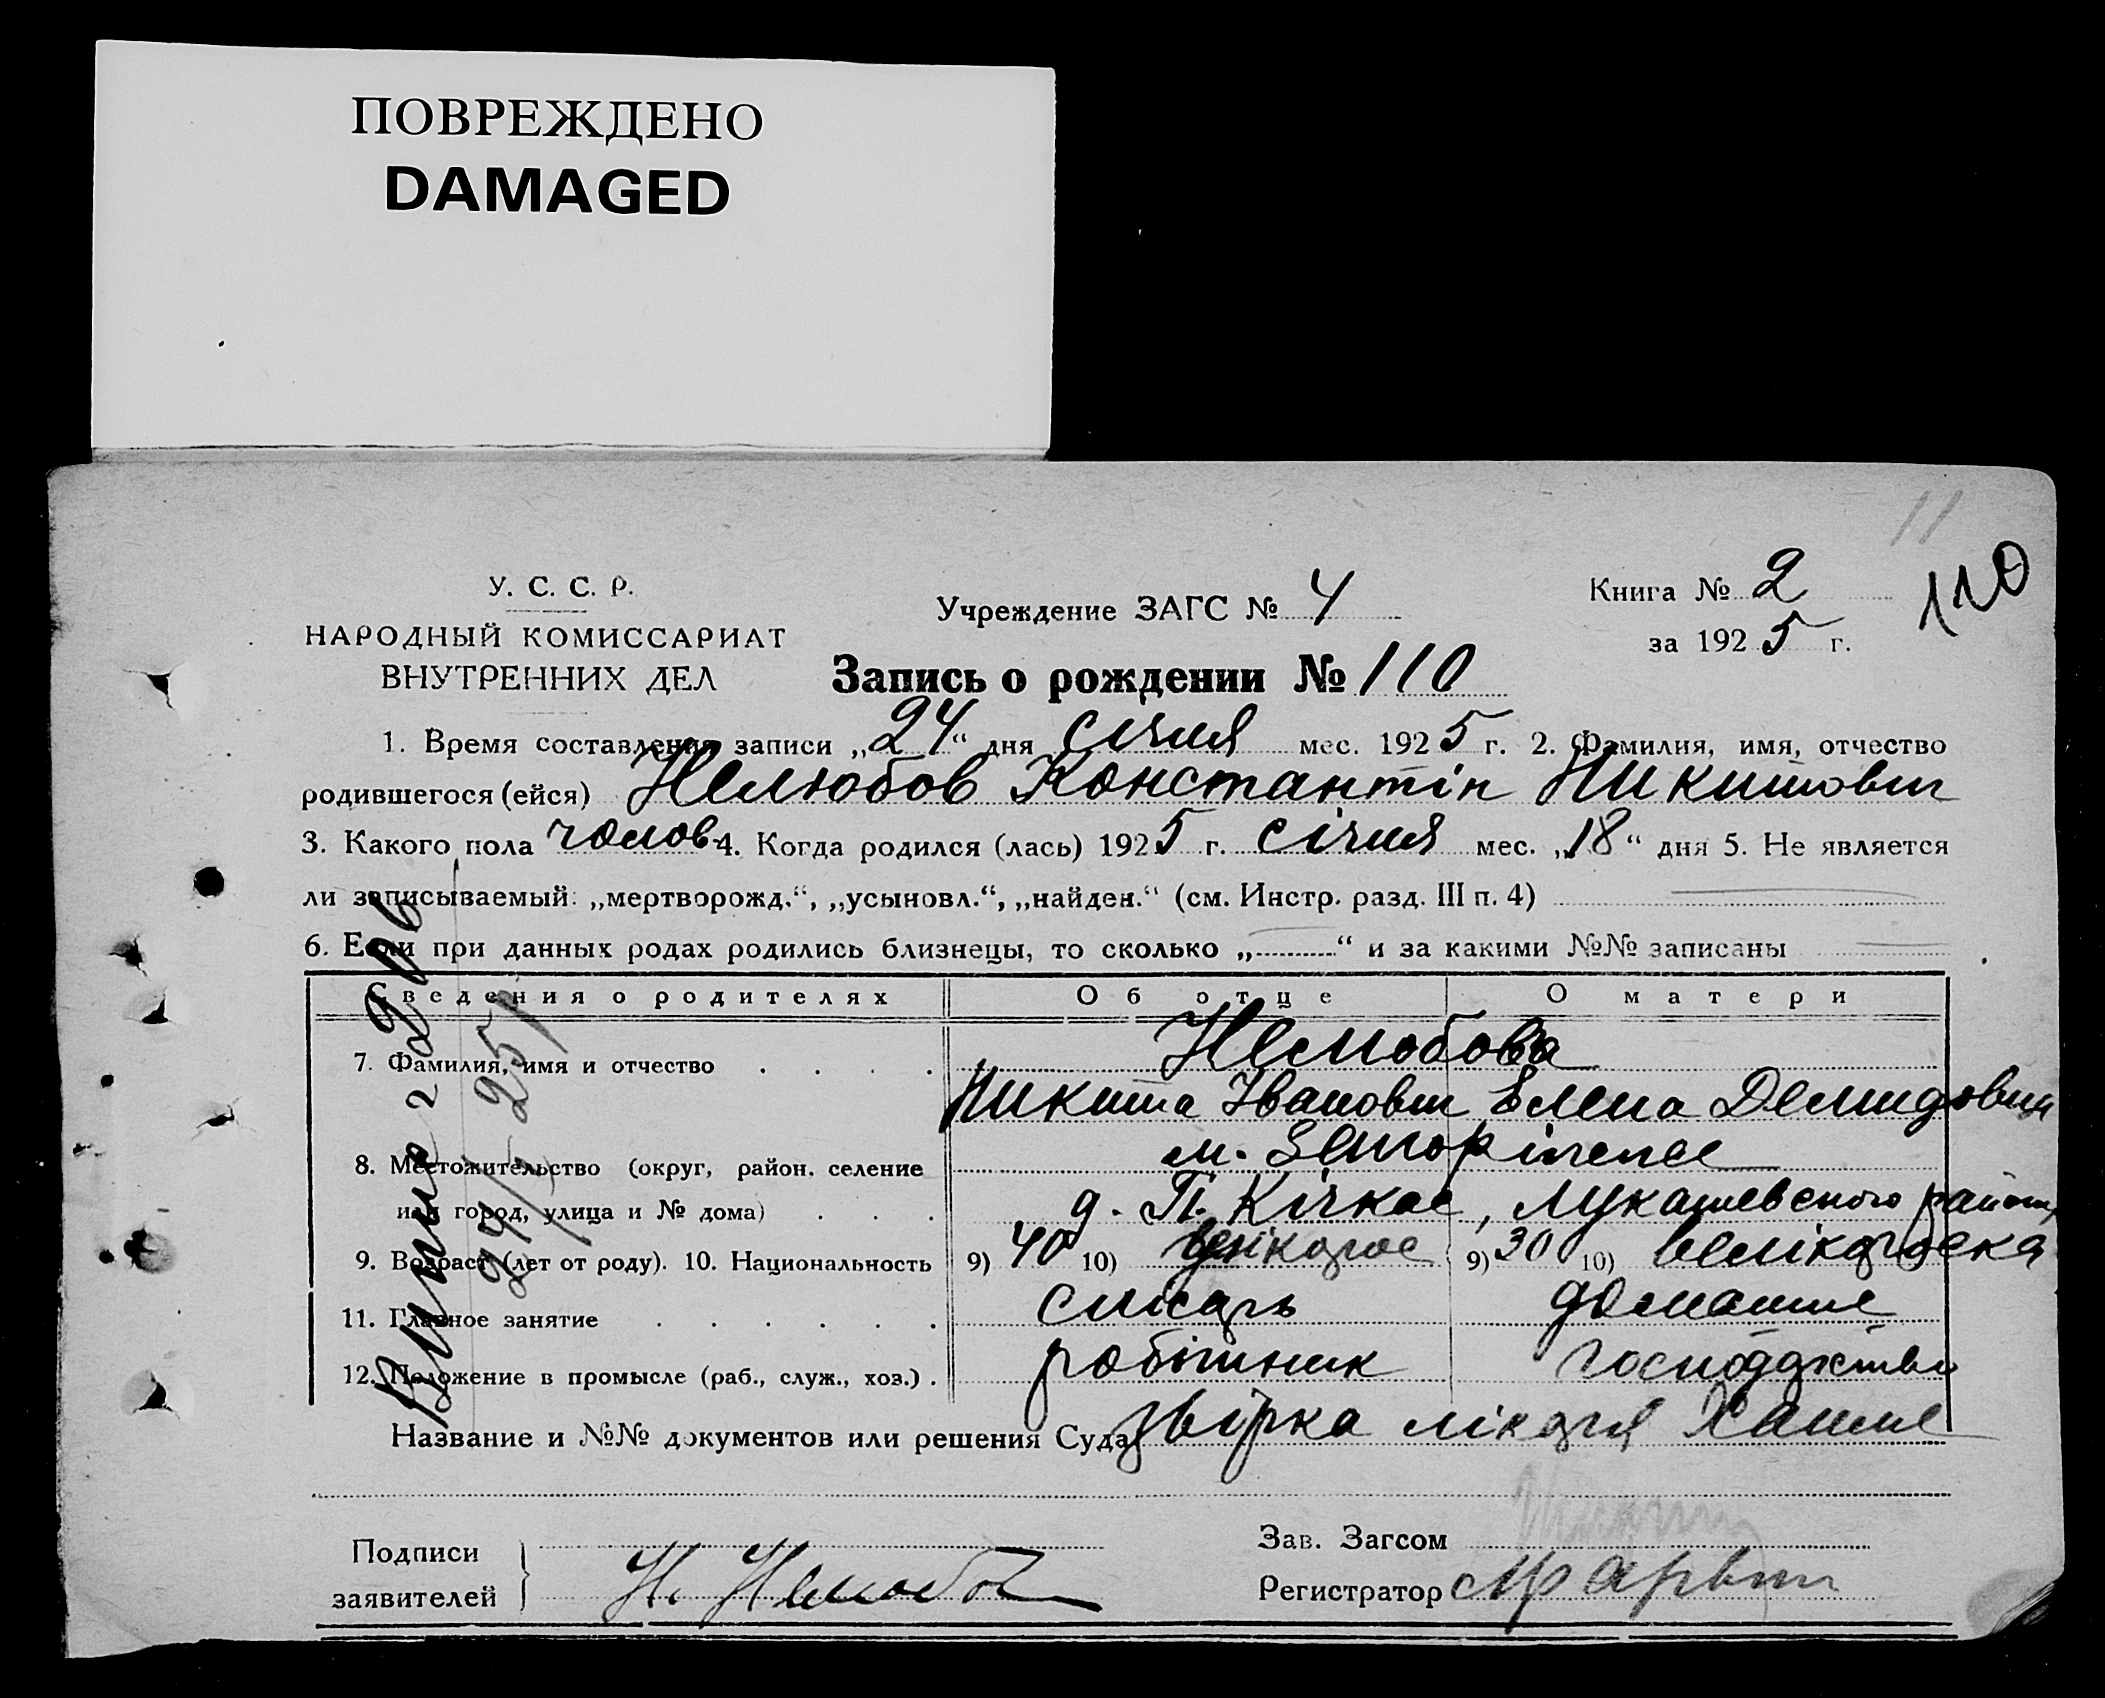 ПОВРЕЖДЕНО
DAMAGED
11
110
У. С. С. Р.
НАРОДНЫЙ КОМИССАРИАТ
ВНУТРЕННИХ ДЕЛ
Учреждение ЗАГС № 4
Книга № 2
за 1925 г.
Запись о рождении № 110
1. Время составления записи „24“ дня січня мес. 1925 г. 2. Фамилия, имя, отчество
родившегося (ейся) Нелюбов Константін Никитович
3. Какого пола чолов. 4. Когда родился (лась) 1925 г. січня мес. „18“ дня 5. Не является
ли записываемый: „мертворожд.“, „усыновл.“, „найден.“ (см. Инстр. разд. III п. 4)
6. Если при данных родах родились близнецы, то сколько „ “ и за какими №№ записаны
Сведения о родителях Об отце О матери
7. Фамилия, имя и отчество . . . . Нелюбова
Никита Іванович Елена Демидовна
8. Местожительство (округ, район, селение м.
или город, улица и № дома) . . . д. П. Кічкас, Лукашевского району
9. Возраст (лет от роду). 10. Национальность 9) 40 10) 9) 30 10)
11. Главное занятие . . . . . . слюсарь домашнє
12. Положение в промысле (раб., служ., хоз.) . робітник господарство
Название и №№ документов или решения Суда
Подписи
заявителей } Н. Нелюбов
Зав. Загсом
Регистратор
24/I 25